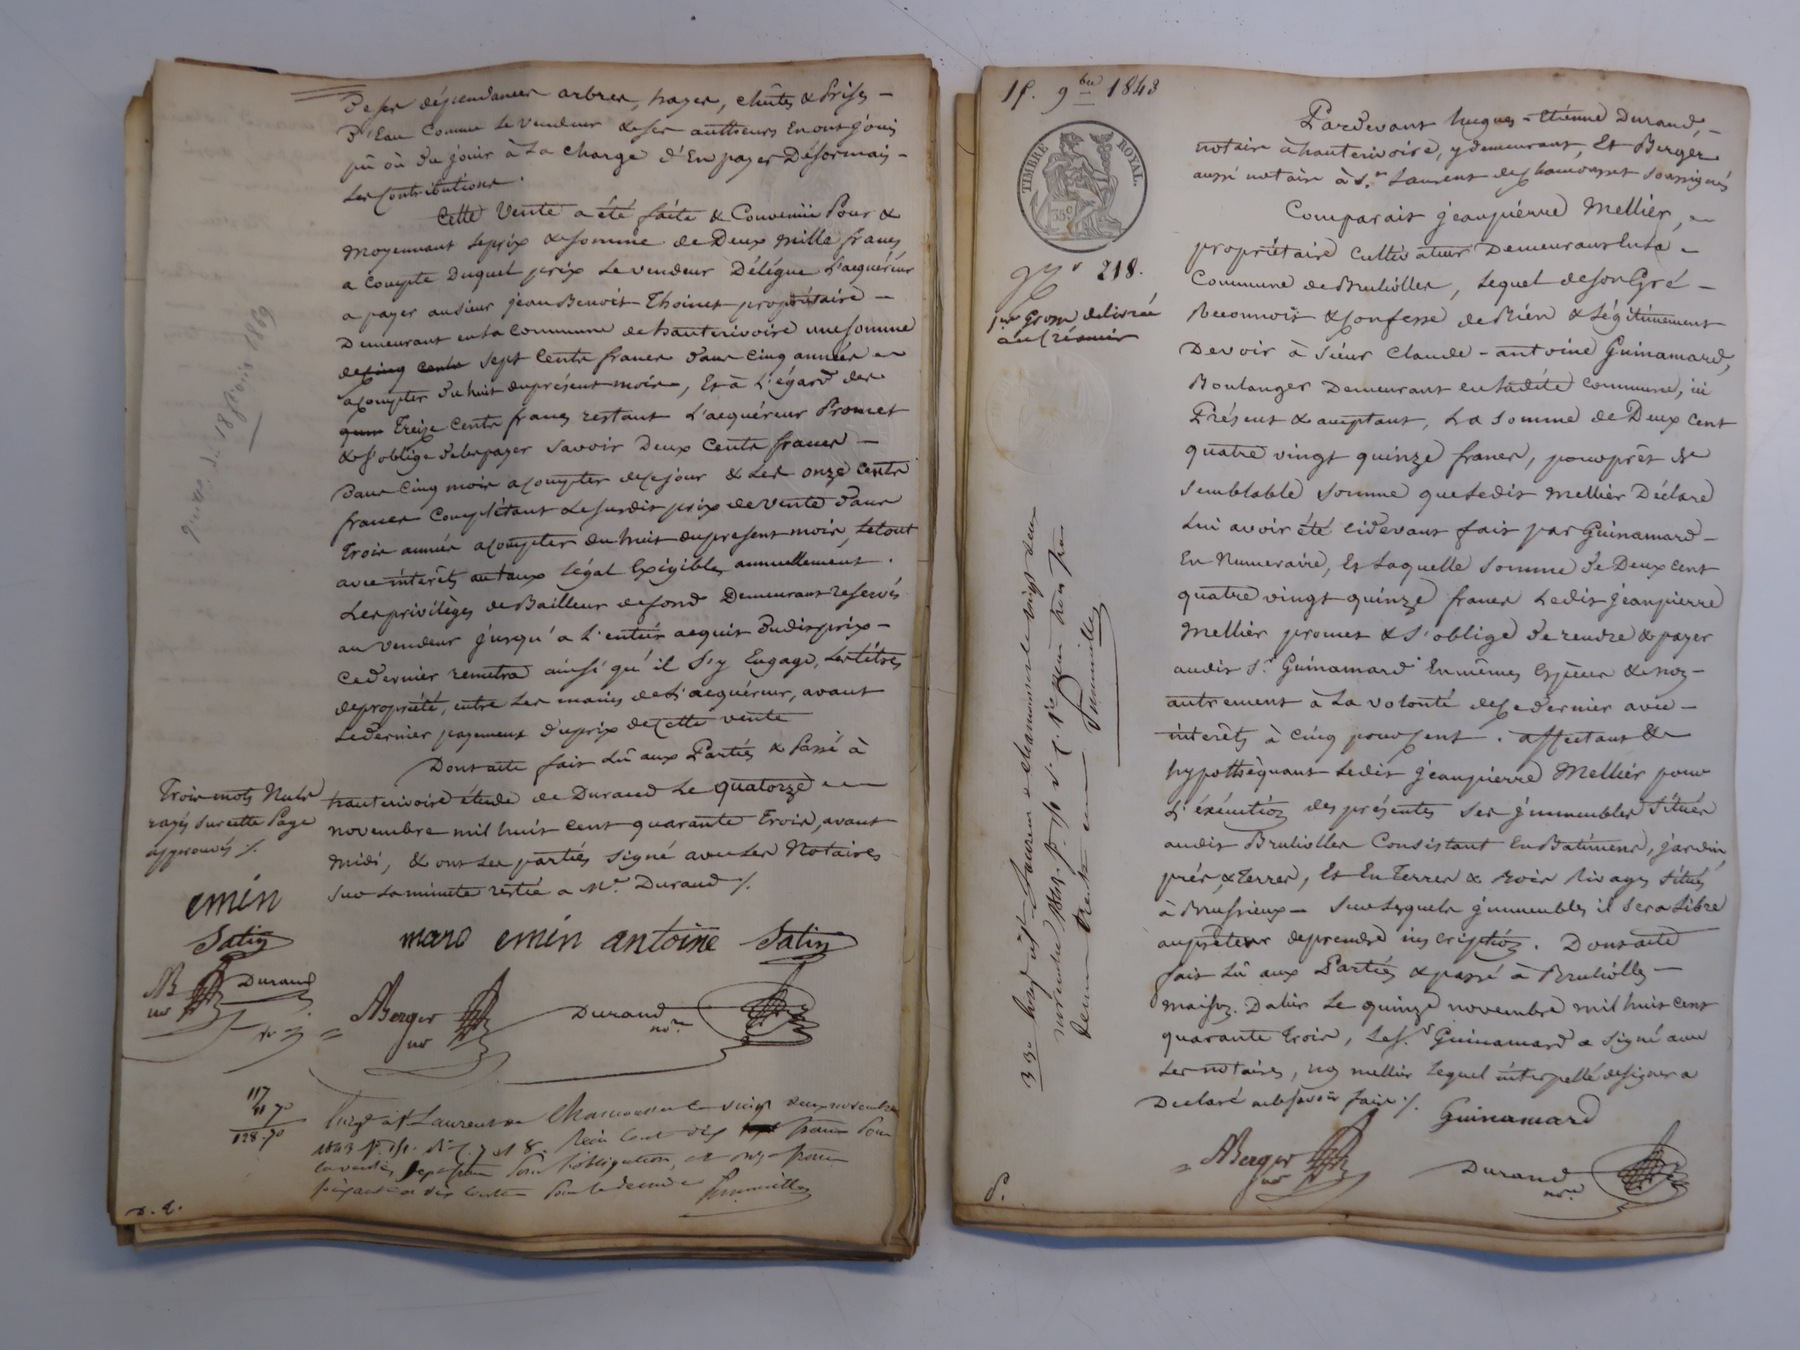 de ses dépendances arbres, hayes, chûtes & Prises -
d'Eau comme le vendeur & ses autheurs En ont joui
pû ou dû jouir à La charge d'En payer Désormais -
Les Contributions.
Cette Vente a été faite & Convenüe Pour &
moyennant le prix & somme de Deux mille francs
a compte Duquel prix le vendeur Délégue L'acquéreur
a payer au sieur jean Benoit Thoinet propriétaire -
Demeurant en la commune de hauterivoire une somme
de cinq cents sept Cents francs dans cinq années
a compter du huit du présent mois, Et à L'égard des
Treize Cents francs restant L'acquéreur Promet
& s'oblige de les payer savoir Deux Cents francs -
dans Cinq mois a compter de ce jour & Les onze cents
francs Complétant le susdit prix de vente dans
Trois années a compter du huit du present mois, Le tout
avec intérêts au taux légal Exigibles annuellement.
Les privilèges de Bailleur de fond Demeurant reservés
au vendeur jusqu'a L'entier acquit du dit prix -
Ce dernier remettra ainsi qu'il s'y Engage, Les titres
de propriété, entre Les mains de L'acquéreur, avant
Le dernier payement du prix de Cette vente
Dont acte fait Lû aux Parties & Passé à
hauterivoire étude de Durand Le quatorze
novembre mil huit cent quarante Trois, avant
midi, & ont Les parties signé avec Les Notaires
sur La minute restée a Me. Durand ./.
Trois mots Nuls
rayés sur cette Page
approuvés ./.
emin
Satin
AB Durand
nre
marc emin antoine Satin
ABerger Durand
nre nre.
117
11 70
128.70
Enregé à St Laurent de Chamousset le vingt deux novembre
1843 fo. 151. Ro. C. 7 et 8. Reçu Cent dix francs Pour
la vente, sept francs Pour l'obligation, et onze francs
soixante dix centimes Pour le decime
D. 2.
15. 9bre 1843
TIMBRE ROYAL.
35c
No 218.
1ere Grosse délivrée
au Créancier
Pardevant hugues-Etiénne Durand, -
notaire à hauterivoire, y demeurant, Et Berger
aussi notaire à St. Laurent de Chamousset soussignés
Comparait jeanpiérre Mellier,
propriétaire Cultivateur Demeurant en la -
Commune de Brullioles, Lequel de son Gré -
Reconnoit & Confesse de Bien & Légitimement
Devoir à Sieur Claude-antoine Guinamard,
Boulanger Demeurant en ladite Commune, ici
Présent & acceptant, La Somme de Deux Cent
quatre vingt quinze francs, pour prêt de
semblable somme que ledit Mellier Déclare
Lui avoir été cidevant fait par Guinamard -
En Numeraire, Et Laquelle Somme de Deux cent
quatre vingt quinze francs Ledit jeanpierre
Mellier promet & s'oblige de rendre & payer
audit Sr. Guinamard En mêmes Espèces & non -
autrement à La volonté de Ce dernier avec -
intérêts à cinq pour Cent. affectant &
hypothèquant Ledit jeanpierre Mellier pour
L'exécution des présentes Ses jmmeubles situés
audit Brullioles Consistant En Batiments, jardin,
prés, & Terres, Et En Terres & Bois Rivages situés
à Brussieux - sur Lesquels jmmeubles il sera Libre
au prêteur de prendre inscription. Dont acte
fait Lû aux Parties & passé à Brullioles -
maison Dalin Le quinze novembre mil huit cent
quarante Trois, Le Sr. Guinamard a signé avec
Les notaires, non Mellier Lequel interpellé de signer a
Declaré ne le savoir faire ./.
Guinamard
ABerger Durand
nre nre.
D.